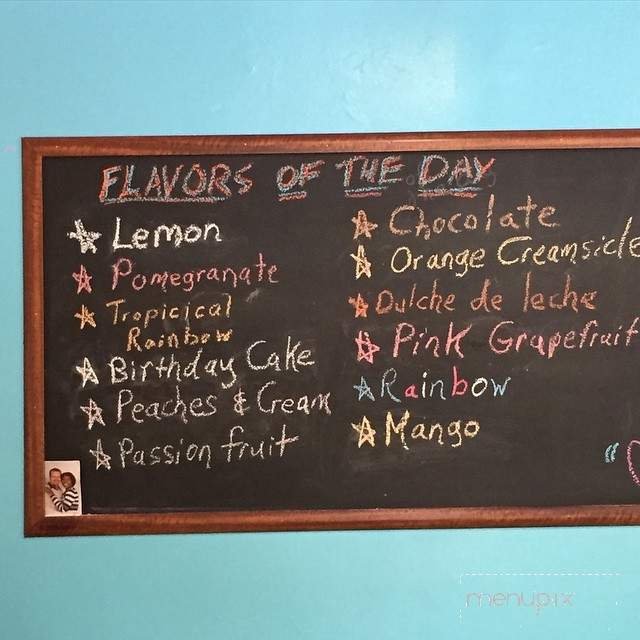 FLAVORS OF THE DAY
Lemon
Pomegranate
Tropicical
Rainbow
Birthday Cake
Peaches & Cream
Passion fruit
Chocolate
Orange Creamsicle
Dulche de leche
Pink Grapefruit
Rainbow
Mango
menupix